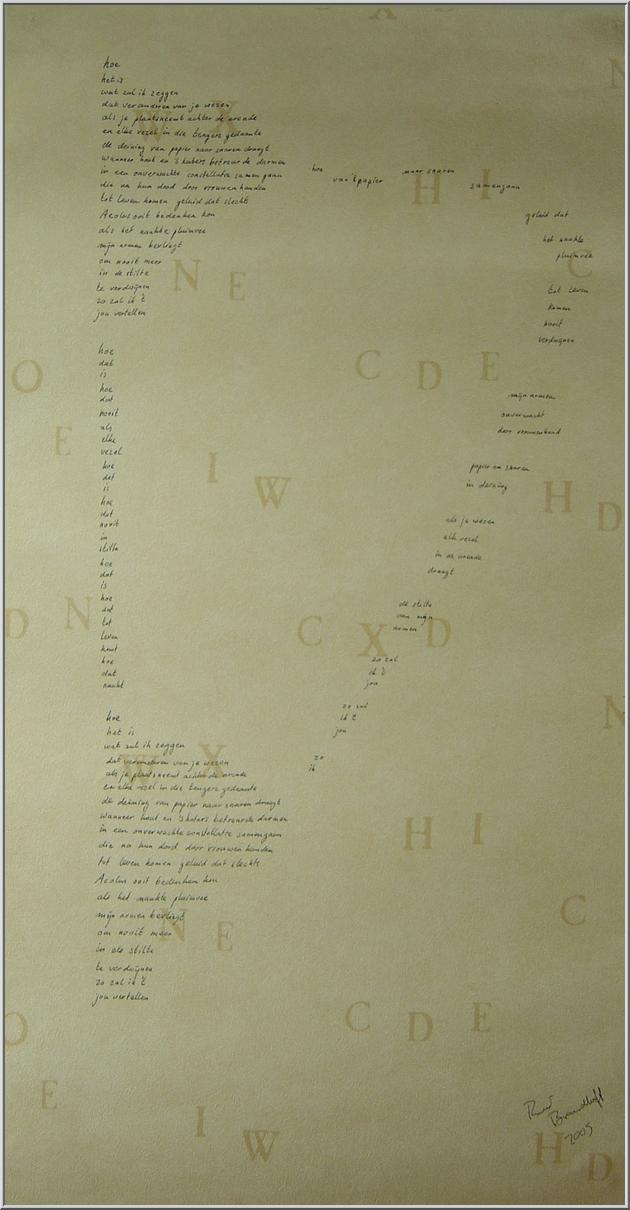 hoe
het is
wat zal ik zeggen
dat veranderen van je wezen
als je plaatsneemt achter de aarde
en elke vezel in die tengere gedaante
de deining van papier naar snaren draagt
wanneer hout en 's katers betreurde darmen
in een onverwachte constellatie samen gaan
die na hun dood door vrouwenhanden
tot leven komen geluid dat slechts
Aeolus ooit bedenken kon
als het naakte pluimvee
mijn armen bevliegt
om nooit meer
in de stilte
te verdwijnen
zo zal ik 't
jou vertellen
hoe
dat
is
hoe
dat
nooit
als
elke
vezel
hoe
dat
is
hoe
dat
nooit
in
stilte
hoe
dat
is
hoe
dat
tot
leven
komt
hoe
dat
naakt
hoe
het is
wat zal ik zeggen
dat veranderen van je wezen
als je plaatsneemt achter de
en elke vezel in die tengere gedaante
de deining van papier naar snaren draagt
wanneer hout en 's katers betreurde darmen
in een onverwachte constellatie samengaan
die na hun dood door vrouwenhanden
tot leven komen geluid dat slechts
Aeolus ooit bedenken kon
als het naakte pluimvee
mijn armen bevliegt
om nooit meer
in de stilte
te verdwijnen
zo zal ik 't
jou vertellen
hoe
van 't papier
naar snaren
samengaan
geluid dat
het naakte
pluimvee
tot leven
komen
nooit
verdwijnen
mijn armen
onverwacht
door vrouwenhand
papier en snaren
in deining
als je wezen
elke vezel
in de
draagt
de stilte
van mijn
armen
zo zal
ik 't
jou
zo zal
ik 't
jou
zo
ik
N
W X
H I
C
N E
O
C D E
E
I W
H D
D N
C X D
N
W X
H I
C
N E
O
C D E
E
I W
H D
2005